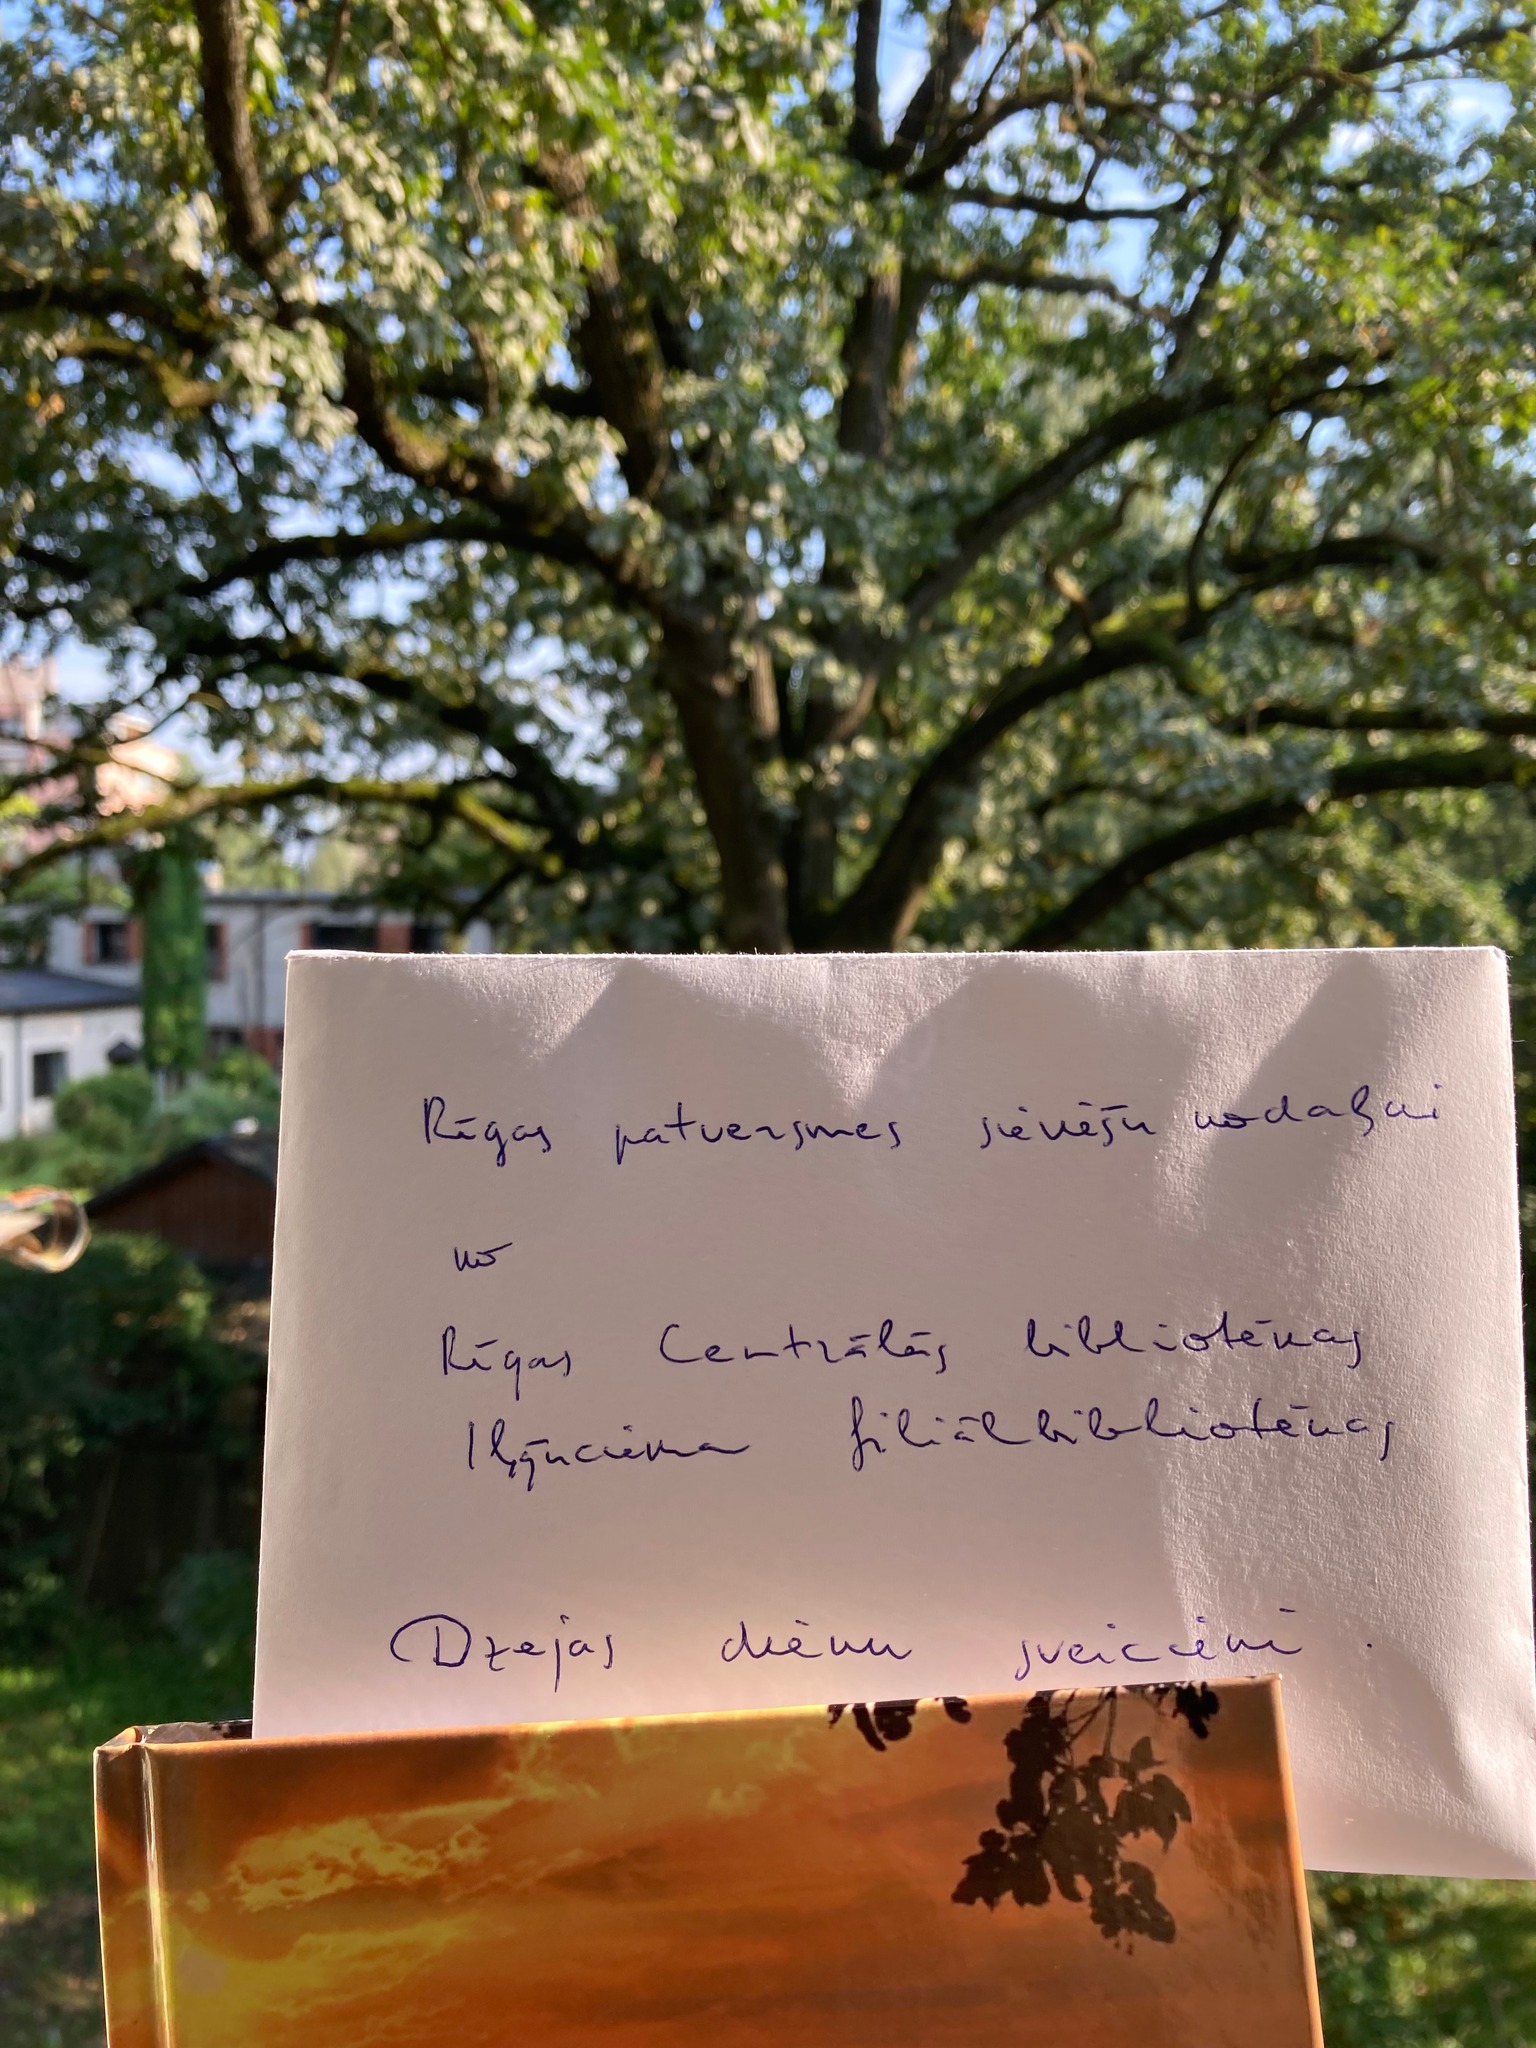 Rīgas patversmes sieviešu nodaļai
no
Rīgas Centrālās bibliotēkas
Iļģuciema filiālbibliotēkas
Dzejas dienu sveicieni.